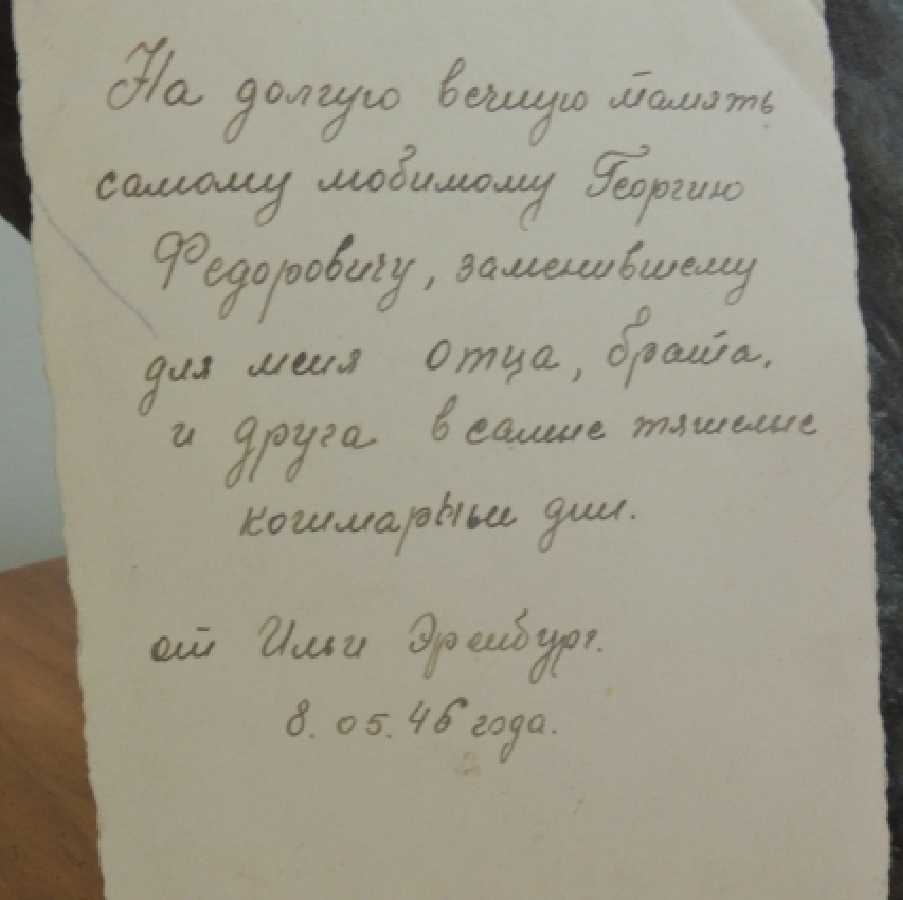 На долгую вечную память
самому любимому Георгию
Федоровичу, заменившему
для меня отца, брата,
и друга в самые тяжелые
когимарные дни.
от Ильи Эренбург.
8. 05. 46 года.